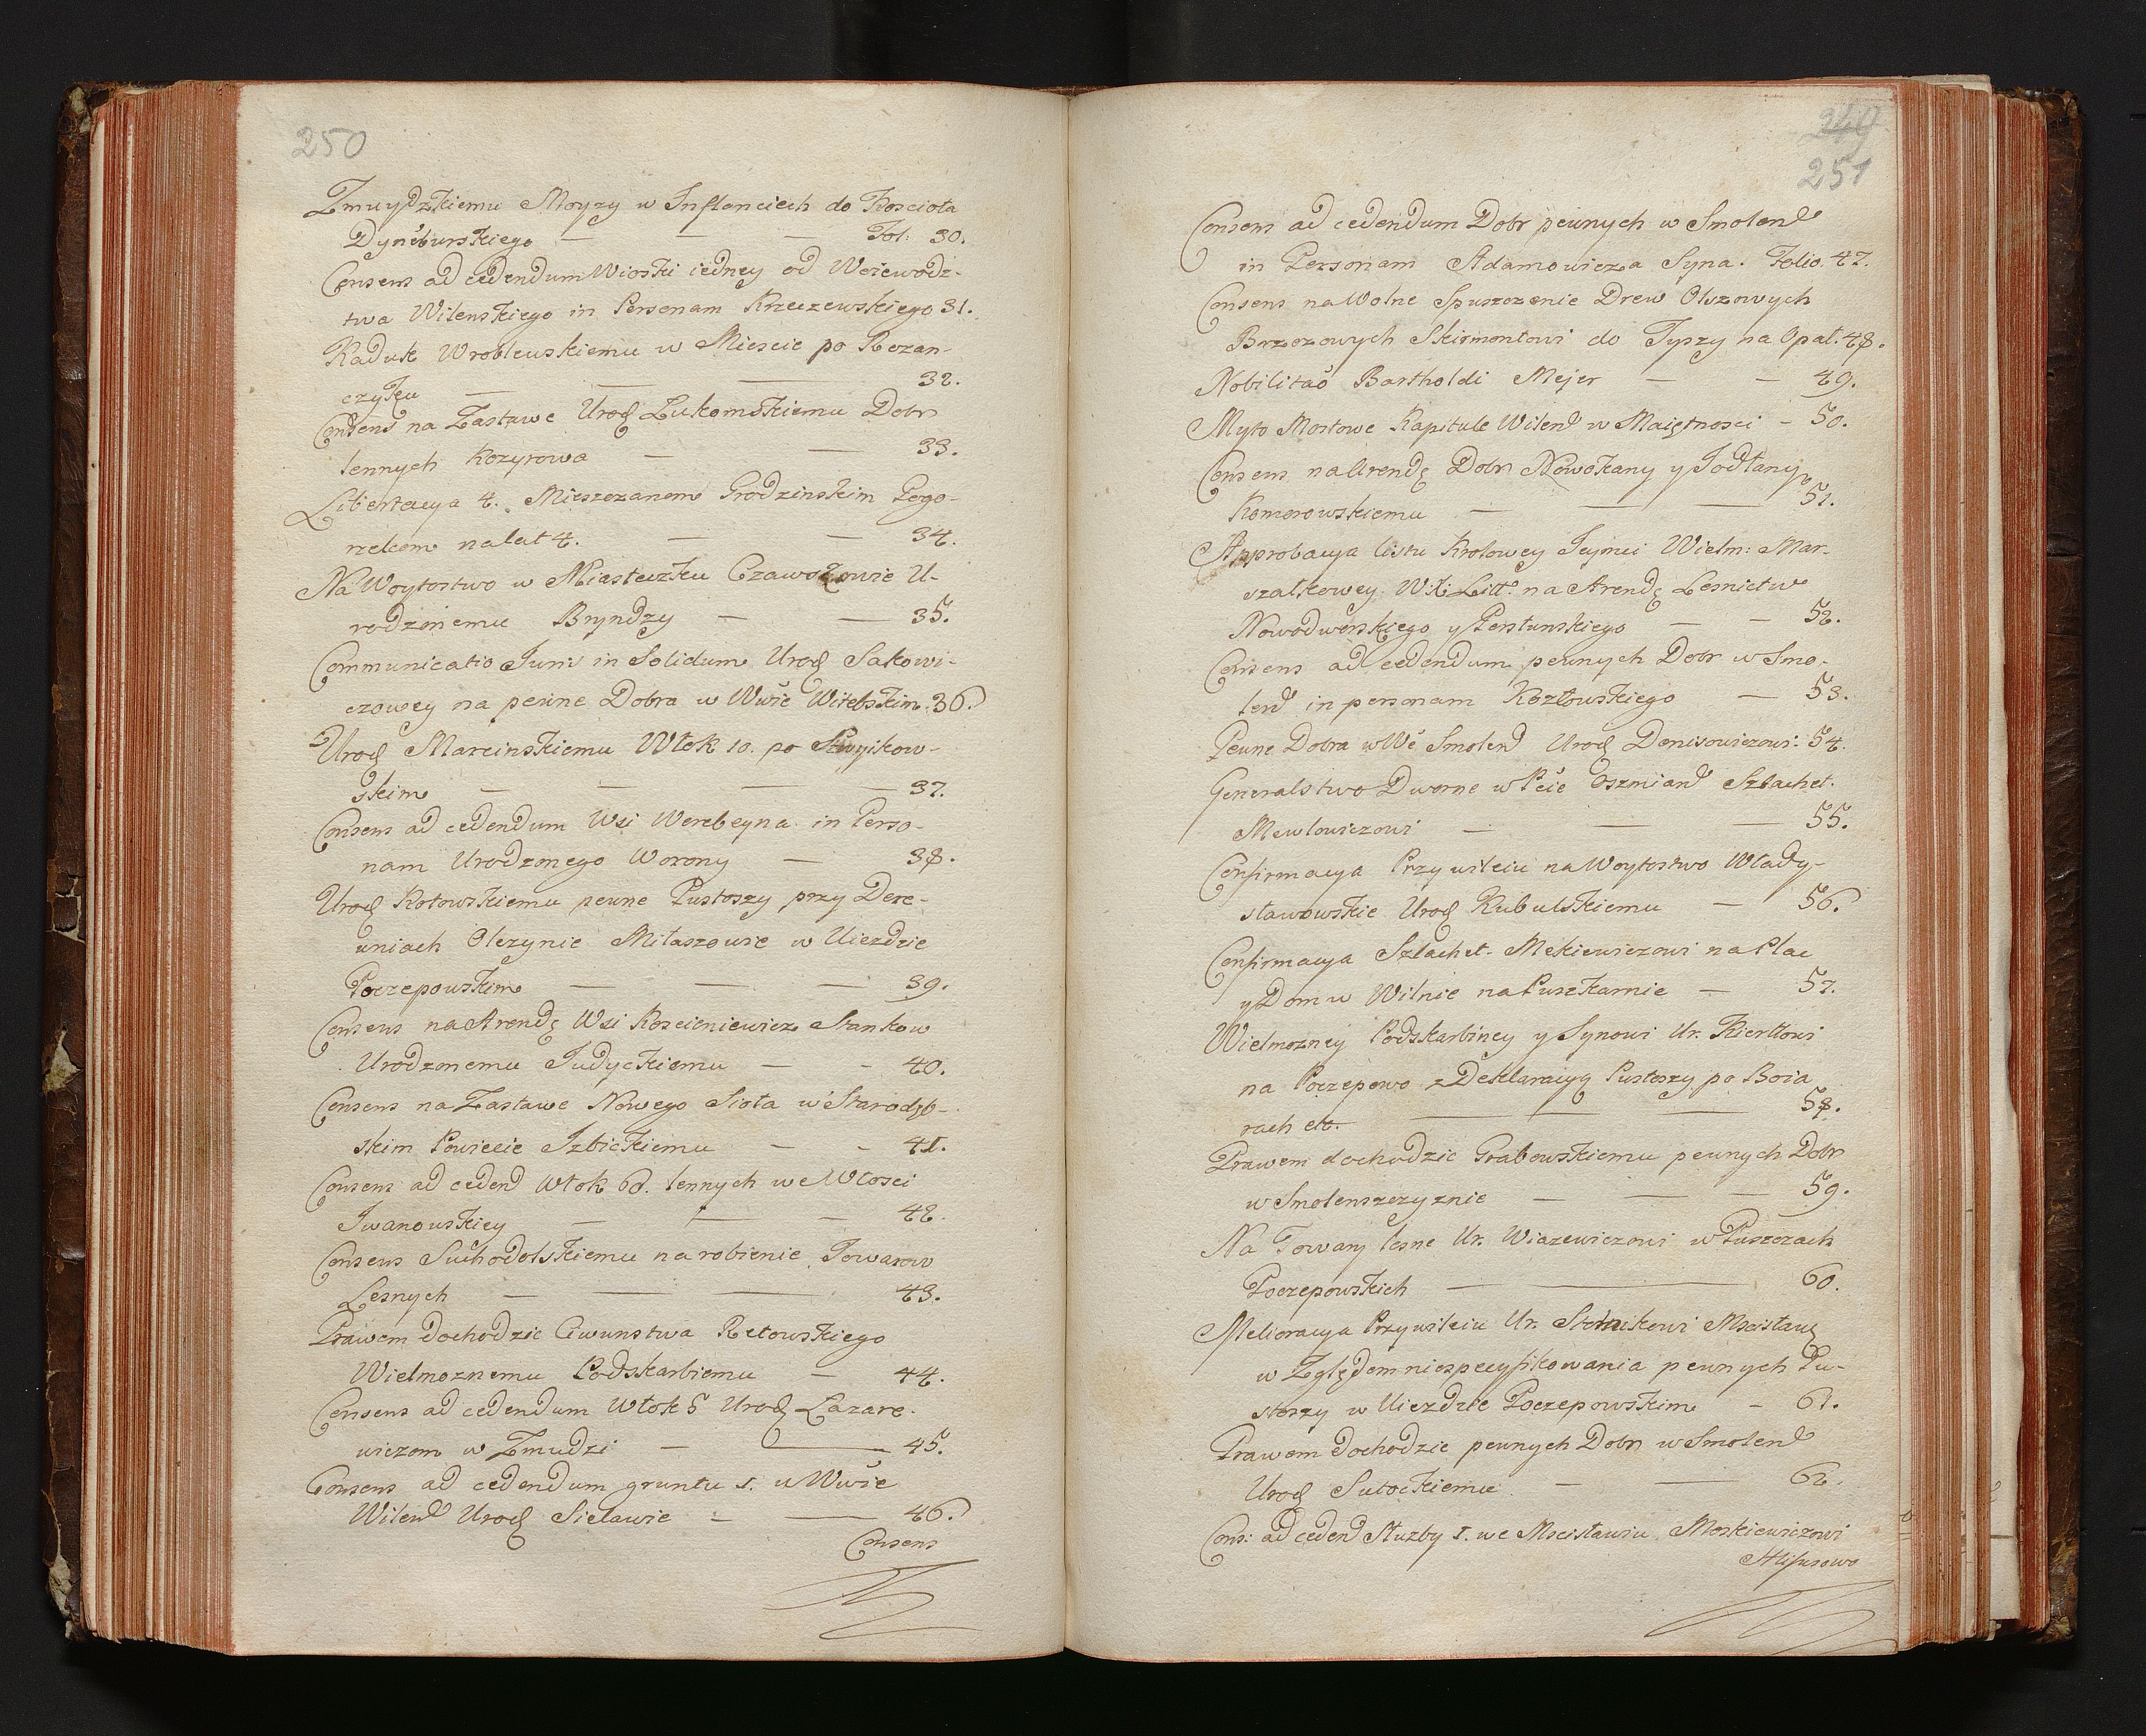 250
Zmuydzkiemu Moyzy w Inflanciech do Kosciola
Dyneburskiego — — — Fol: 30.
Consens ad cedendum Wioski iedney od Woiewodz-
twa Wilenskiego in Personam Krzeczewskiego 31.
Kaduk Wroblewskiemu w Miescie po Rozan-
czyku — — — 32.
Consens na Zastawe Urod Lukomskiemu Dobr
lennych Kozyrowa — — 33.
Libertacya 4. Mieszczanom Grodzinskim Pogo-
rzelcom na lat 4. — — 34.
Na Woytostwo w Miasteczku Czawszowie U-
rodzonemu Bryndzy — — 35.
Communicatio Juris in Solidum Urod Sakowi-
czowey na pewne Dobra w Wwie Witebskim 36.
Urod Marcinskiemu Wlok 10. po
skim — — — — 37.
Consens ad cedendum Wsi Werebeyna in Perso-
nam Urodzonego Worony — 38.
Urod Kotowskiemu pewne Pustoszy przy Dere-
wniach Olczynie Milaszowie w Uiezdzie
Poczepowskim — — — 39.
Consens na Arendę Wsi Koscieniewicz Stankow
Urodzonemu Judyckiemu — - 40.
Consens na Zastawe Nowego Siola w Starodub-
skim Powiecie Izbickiemu — - 41.
Consens ad cedend Wlok 60. lennych we Wlosci
Iwanowskiey — — — 42.
Consens Suchodolskiemu na robienie Towarow
Lesnych — — — 43.
Prawem dochodzic Ciwunstwa Retowskiego
Wielmoznemu Podskarbiemu — 44.
Consens ad cedendum Wlok 5 Urod Lazare-
wiczom w Zmudzi — — 45.
Consens ad cedendum gruntu 1. w Wwie
Wilend Urod Sielawie — — 46.
Consens
249
251
Consens ad cedendum Dobr pewnych w Smolend
in Personam Adamowicza Syna. Folio. 47.
Consens na Wolne Spuszczenie Drew Olszowych
Brzozowych Skirmontowi do Typzy na Opal. 48.
Nobilitao Bartholdi Mejer — — 49.
Myto Mostowe Kapitule Wilend w Maiętnosci - 50.
Consens na Arendę Dobr Nowokany y Podlany
Komorowskiemu — — — 51.
Approbacya listu Krolowey Jeymci Wielm: Mar-
szalkowey W: X: Litt: na Arendę Lesnictw
Nowodworskiego y Perstunskiego — — 52.
Consens ad cedendum pewnych Dobr w Smo-
lend in personam Kozlowskiego — 53.
Pewne Dobra w Wè Smolend Urod Denisowiczowi: 54.
Generalstwo Dworne w Pcie Oszmiand Szlachet.
Mewlowiczowi — — — 55.
Confirmacya Przywileiu na Woytostwo Wlady-
slawowskie Urod Kubulskiemu — 56.
Confirmacya Szlachet. Mekiewiczowi na Plac
y Dom w Wilnie na Puszkarnie — 57.
Wielmozney Podskarbiney y Synowi Ur. Kierllowi
na Poczepowo z Deklaracyą Pustoszy po Boia
rach etc. — — — 58.
Prawem dochodzic Grabowskiemu pewnych Dobr
w Smolenszczyznie — — — 59.
Na Towary lesne Ur. Wiazewiczowi w Puszczach
Poczepowskich — — 60.
Melioracya Przywileiu Ur. Stolnikowi Mscislaw
w Zględem niespecyfikowania pewnych Pu-
stoszy w Uiezdzie Poczepowskim - 61.
Prawem dochodzic pewnych Dobr w Smolend
Urod Sutockiemu — — 62.
Cons: ad cedend Sluzby 1. we Mscislawiu Moskiewiczowi